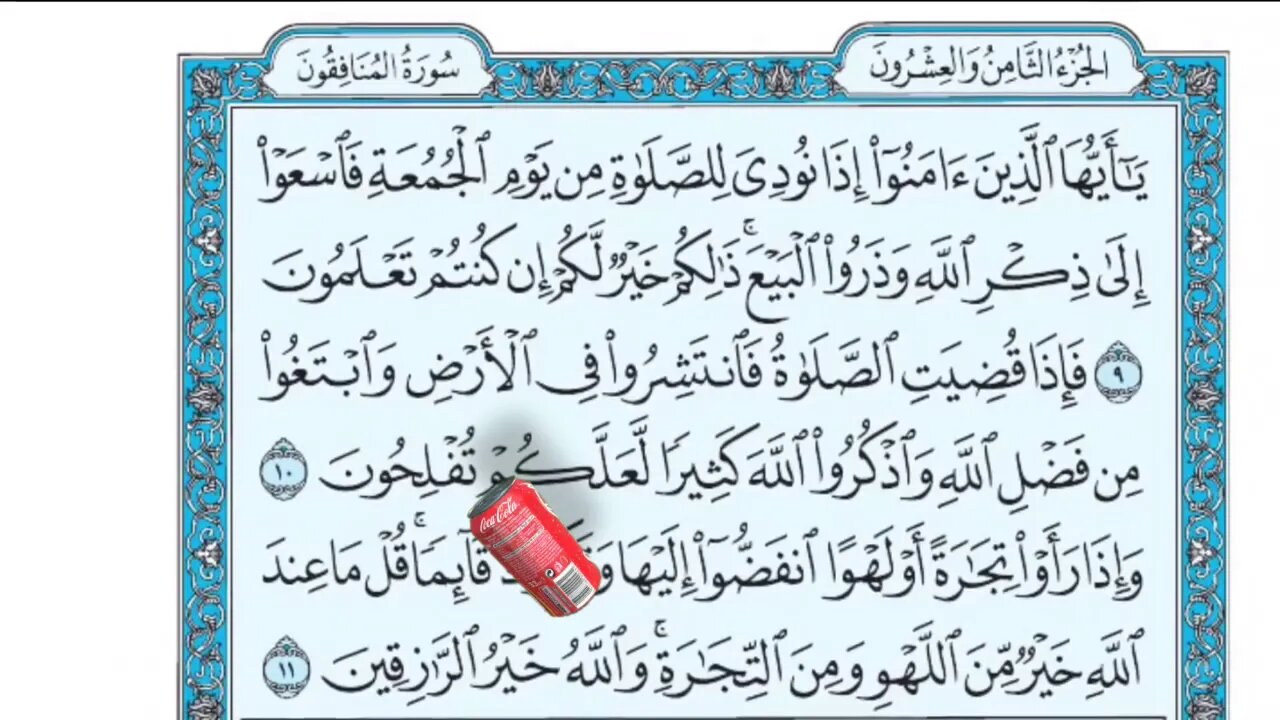 الجُزْءُ الثَّامِنُ وَالعِشْرُونَ
سُورَةُ المُنَافِقُونَ
يَـٰٓأَيُّهَا ٱلَّذِينَ ءَامَنُوٓا۟ إِذَا نُودِىَ لِلصَّلَوٰةِ مِن يَوْمِ ٱلْجُمُعَةِ فَٱسْعَوْا۟
إِلَىٰ ذِكْرِ ٱللَّهِ وَذَرُوا۟ ٱلْبَيْعَ ۚ ذَٰلِكُمْ خَيْرٌ لَّكُمْ إِن كُنتُمْ تَعْلَمُونَ
٩ فَإِذَا قُضِيَتِ ٱلصَّلَوٰةُ فَٱنتَشِرُوا۟ فِى ٱلْأَرْضِ وَٱبْتَغُوا۟
مِن فَضْلِ ٱللَّهِ وَٱذْكُرُوا۟ ٱللَّهَ كَثِيرًا لَّعَلَّكُمْ تُفْلِحُونَ ١٠
وَإِذَا رَأَوْا۟ تِجَـٰرَةً أَوْ لَهْوًا ٱنفَضُّوٓا۟ إِلَيْهَا قَآئِمًا ۚ قُلْ مَا عِندَ
ٱللَّهِ خَيْرٌ مِّنَ ٱللَّهْوِ وَمِنَ ٱلتِّجَـٰرَةِ ۚ وَٱللَّهُ خَيْرُ ٱلرَّٰزِقِينَ ١١
Coca-Cola